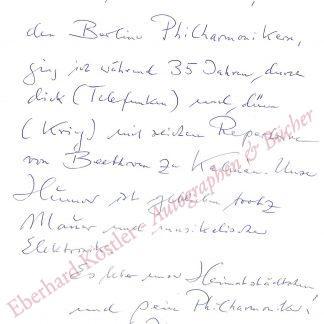 den Berliner Philharmonikern,
ging ich während 35 Jahren durch
dick (Telefunken) und dünn
(Krieg) mit reichem Repertoire
von Beethoven zu Kálmán. Unser
Humor ist geblieben trotz
Mauer und musikalischer
Elektronik.
Es lebe unser Heimatstädtchen
und sein Philharmoniker!
Eberhard Köstler - Autographen & Bücher